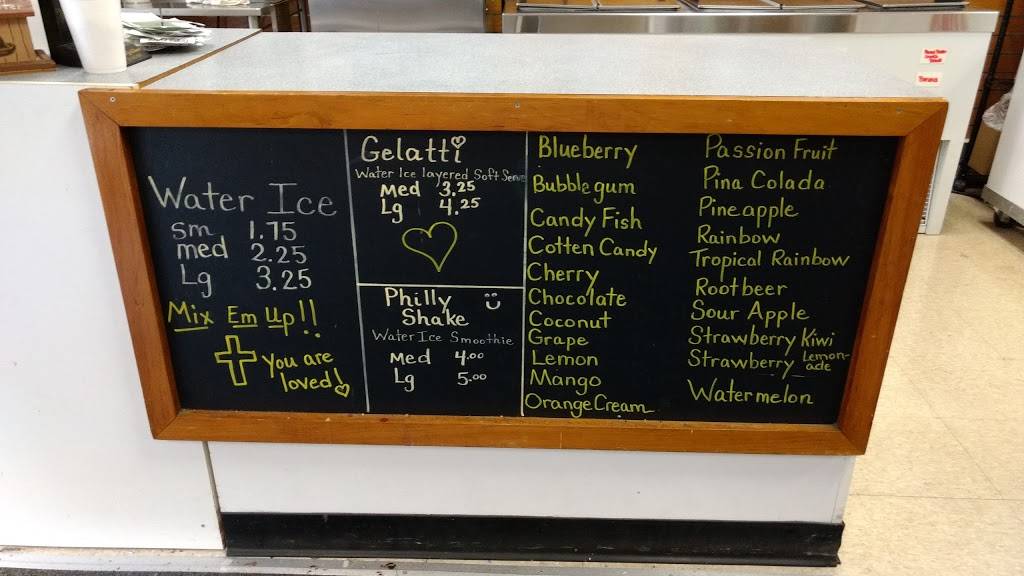 Water Ice
Sm 1.75
med 2.25
Lg 3.25
Mix Em Up!!
You are
loved!
Gelatti
Water Ice layered Soft Serve
Med 3.25
Lg 4.25
Philly
Shake
Water Ice Smoothie
Med 4.00
Lg 5.00
Blueberry
Bubble gum
Candy Fish
Cotten Candy
Cherry
Chocolate
Coconut
Grape
Lemon
Mango
Orange Cream
Passion Fruit
Pina Colada
Pineapple
Rainbow
Tropical Rainbow
Rootbeer
Sour Apple
Strawberry Kiwi
Strawberry Lemon-
ade
Watermelon